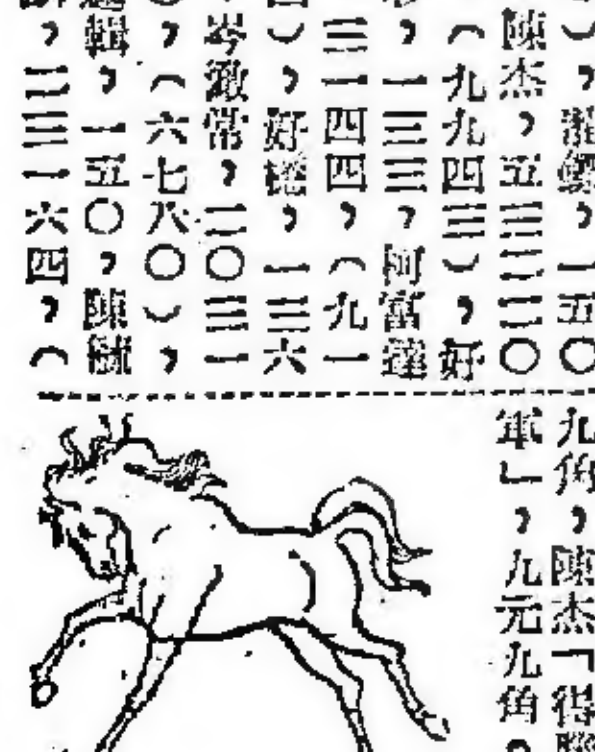 ），，一五〇
陳杰，五三三二〇
（九九四三），好
，一三三，阿富達
三一四四，（九一
），好，一三六
岑澂常，二〇三一
，（六七八〇），
輯，一五〇，陳毓
，二三一六四，（
九角，陳杰「得勝
軍」，九元九角。